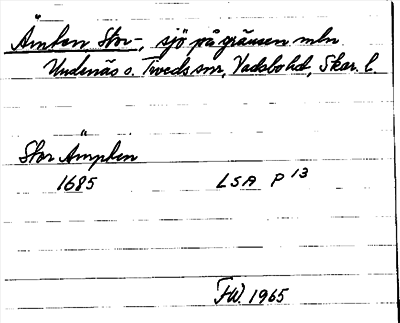 Ämten, Stor-, sjö på gränsen mln
Undenäs o. Tiveds snr, Vadsbo hd, Skar. l.
Stor Ämpten
1685 LSA P 13
FW. 1965